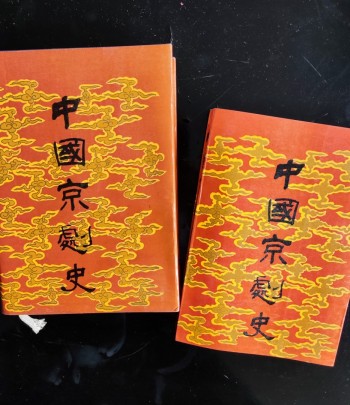 中國京劇史
中國京劇史